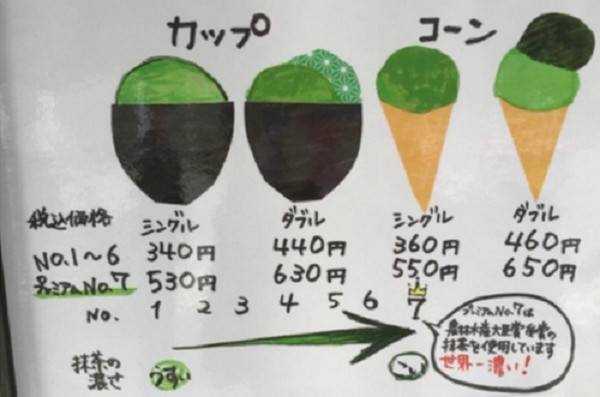 カップ コーン
税込価格 シングル ダブル シングル ダブル
NO.1〜6 340円 440円 360円 460円
プレミアムNo.7 530円 630円 550円 650円
NO. 1 2 3 4 5 6 7
抹茶の
濃さ
うすい
プレミアムNo.7は
農林水産大臣賞受賞の
抹茶を使用しています
世界一濃い!